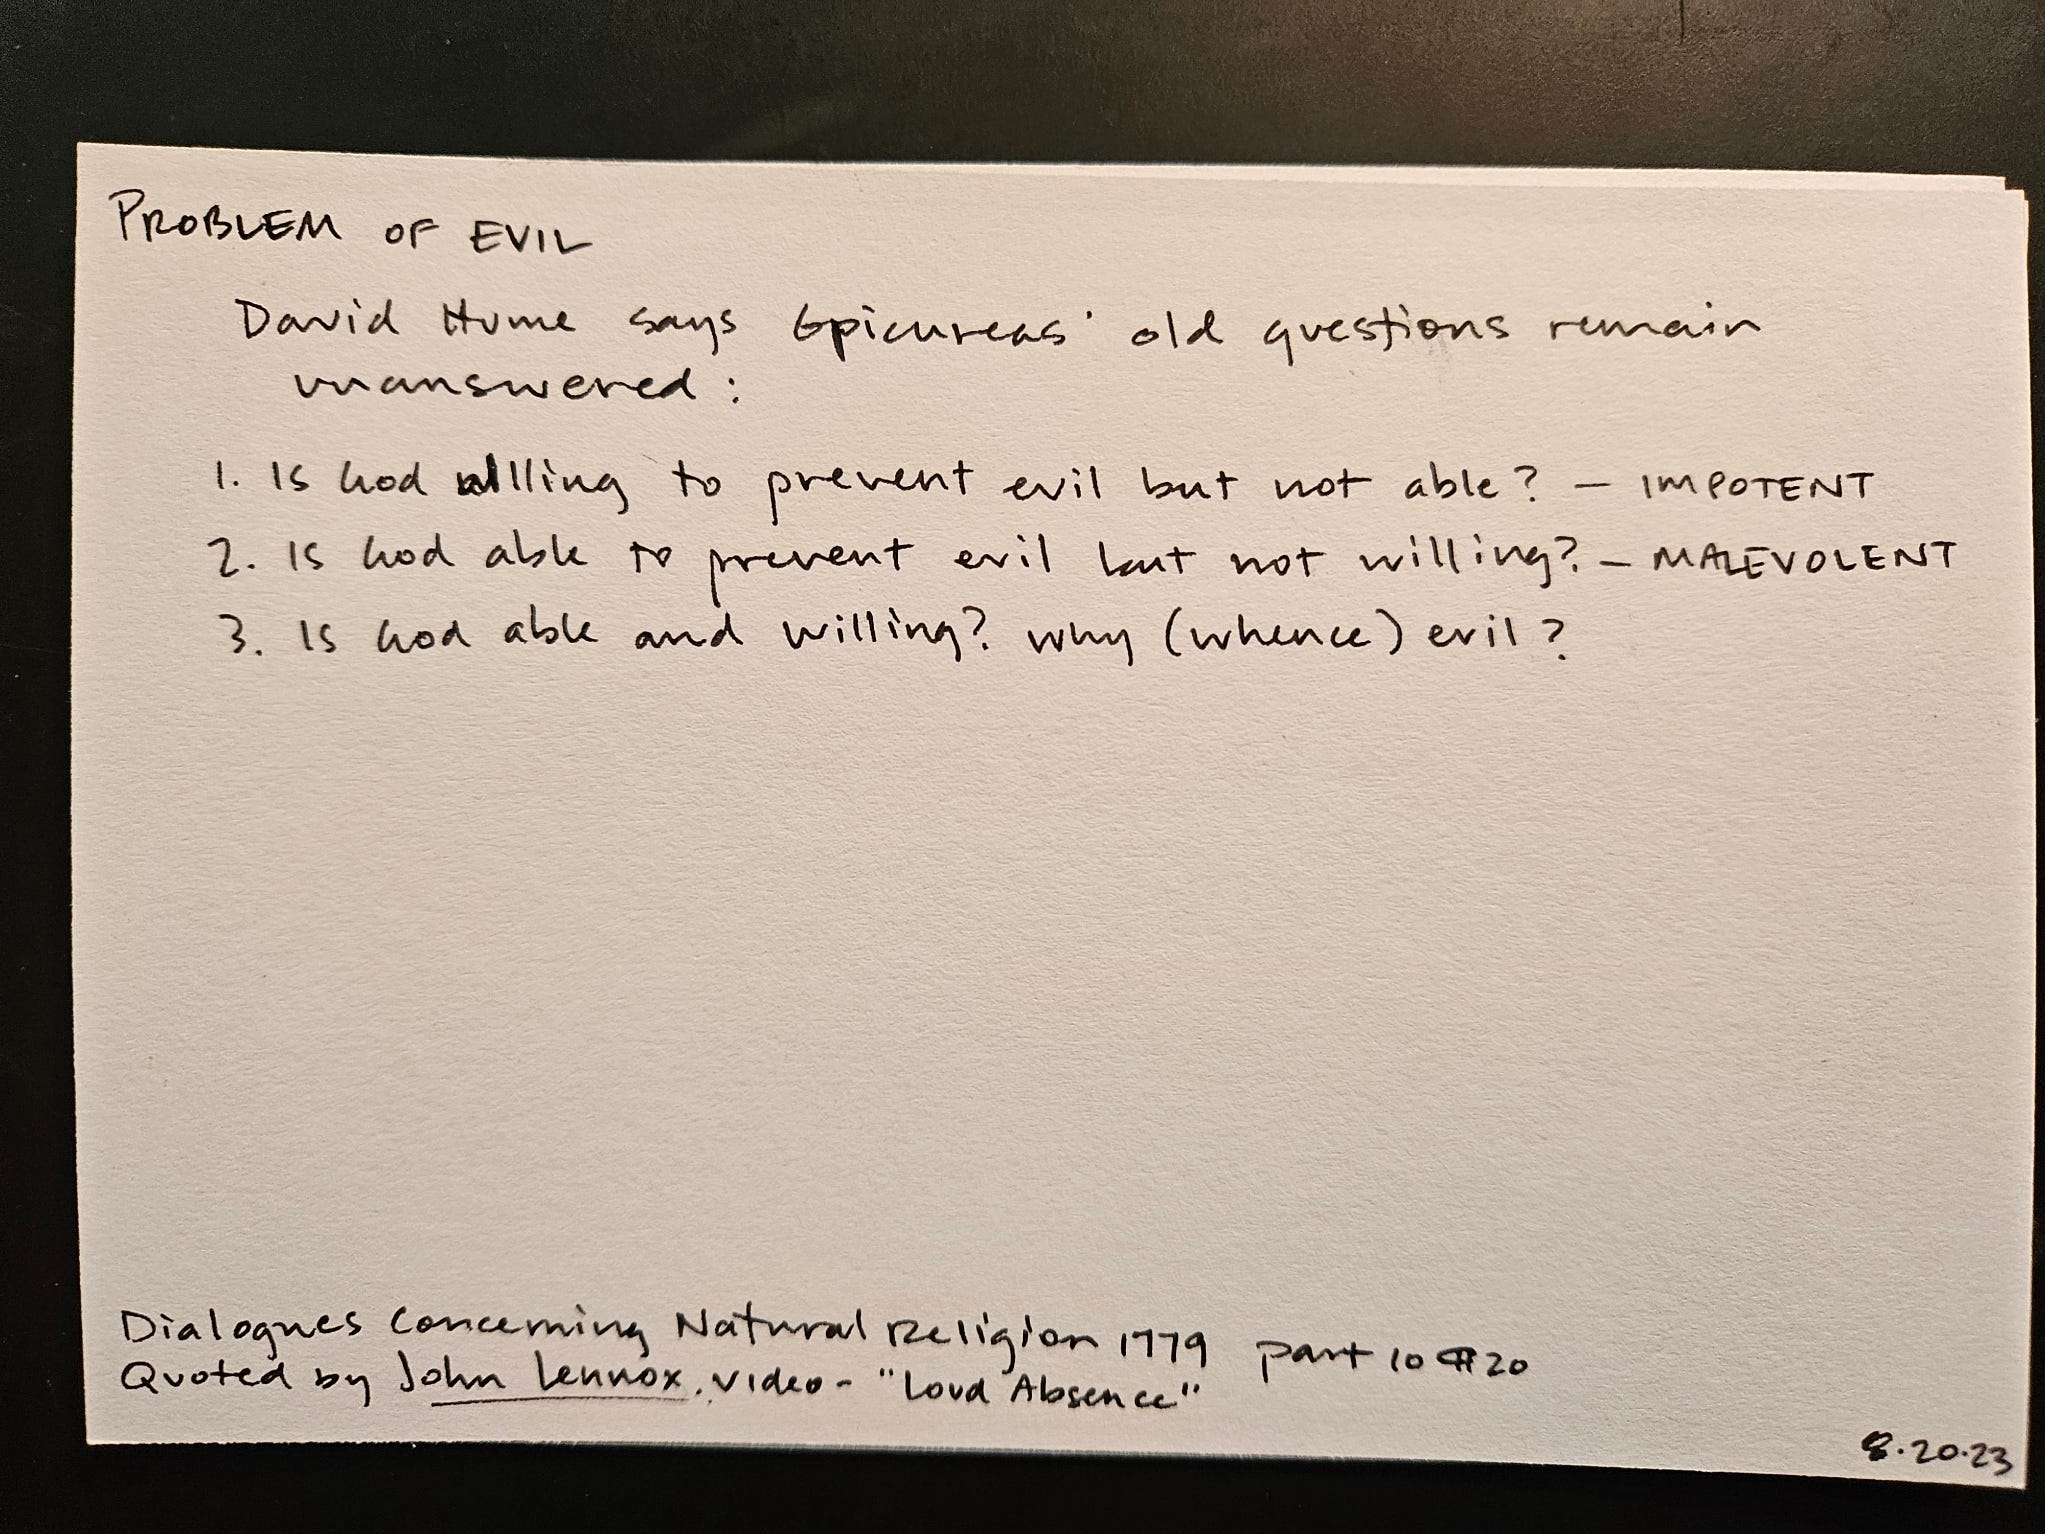 PROBLEM OF EVIL
David Hume says Epicureas' old questions remain
unanswered:
1. Is God willing to prevent evil but not able? — IMPOTENT
2. Is God able to prevent evil but not willing? — MALEVOLENT
3. Is God able and willing? why (whence) evil?
Dialogues Concerning Natural Religion 1779 part 10 ¶20
Quoted by John Lennox. video - "Loud Absence"
8.20.23